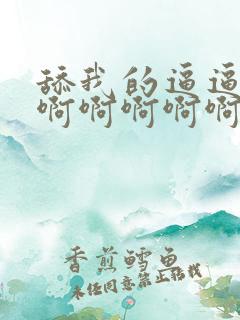 舔我的逼逼
啊啊啊啊啊
香煎鳕鱼
未经同意禁止转载